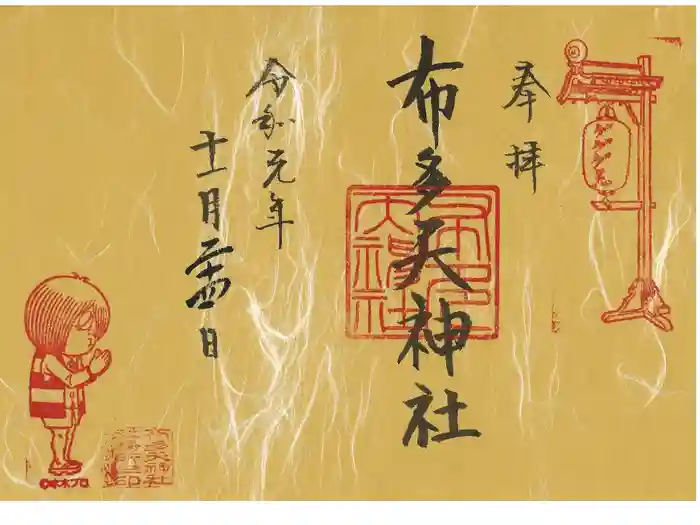 奉拝
布多天神社
令和元年
十一月二十四日
ゲゲゲ
©水木プロ